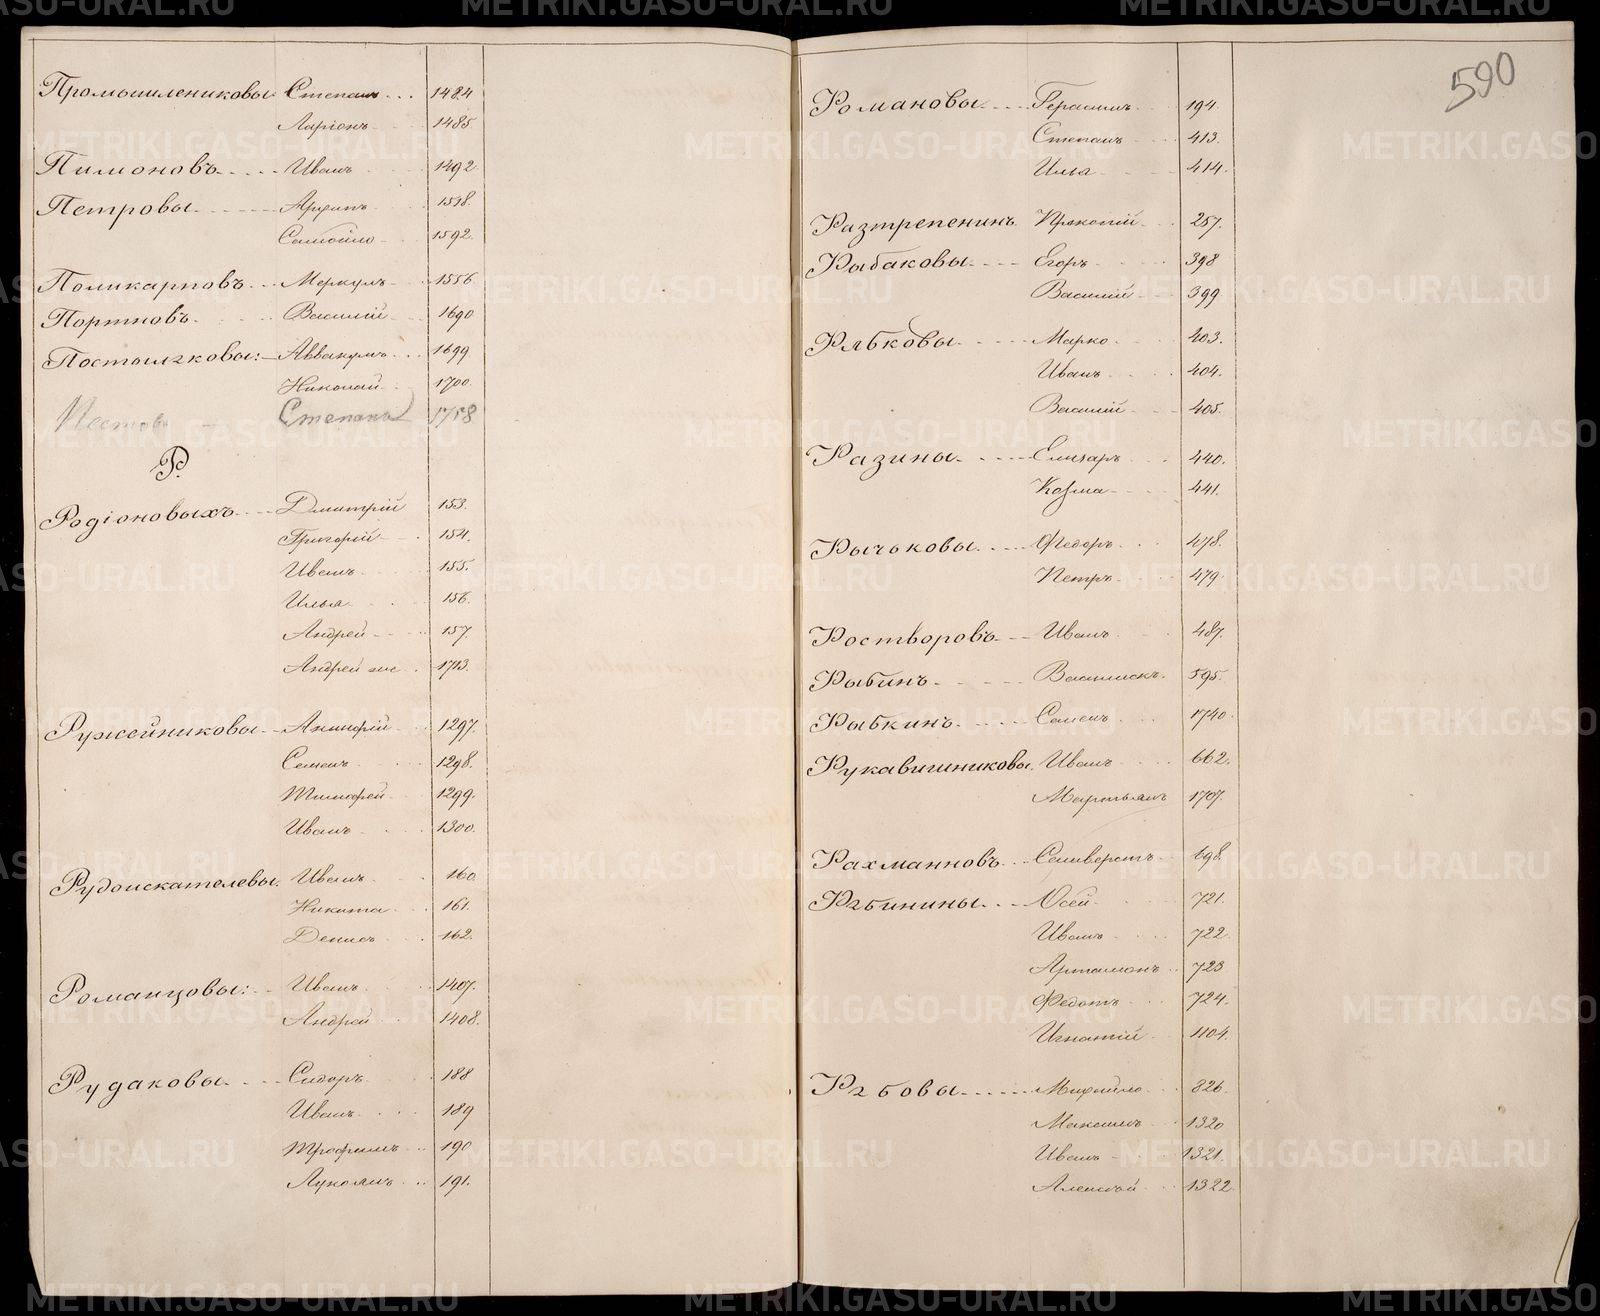 Промышлениковы. Степанъ ... 1484
Ларіонъ 1485
Пимоновъ.... Иванъ 1492
Петровы Архипъ 1538.
Самойло 1592.
Поликарповъ... Меркулъ 1556
Портновъ. Василій 1690
Постылгковы:– Аввакумъ... 1699
Николай 1700
Пестовъ – Степанъ 1758
Р.
Родіоновыхъ Дмитрій 153.
Григорій 154.
Иванъ 155.
Илья 156.
Андрей 157.
Андрей же 1713.
Ружейниковы Акинфій 1297.
Семенъ 1298.
Тимофей 1299.
Иванъ 1300.
Рудоискателевы. Иванъ 160
Никита 161.
Денисъ 162.
Романцовы: Иванъ 1407.
Андрей 1408.
Рудаковы Сидоръ 188
Иванъ 189
Трофимъ 190
Лукоянъ 191.
590
Романовы Герасимъ 194.
Степанъ 413.
Илья 414.
Разтрепенинъ Прокопій 257.
Рыбаковы Егоръ 398
Василій 399
Рябковы Марко 403.
Иванъ 404.
Василій 405.
Разины Елизаръ 440.
Козма 441.
Рычьковы Федоръ 478.
Петръ 479.
Ростворовъ Иванъ 487.
Рыбинъ Василискъ. 595.
Рыбкинъ Семенъ 1740.
Рукавишниковы. Иванъ 662.
Мартьянъ 1707.
Рахманновъ Селиверстъ 698.
Рѣбинины Осей 721.
Иванъ 722.
Артамонъ 723
Федотъ 724.
Игнатій 1104.
Рѣбовы Михайло 826.
Максимъ 1320
Иванъ 1321.
Алексѣй 1322.
METRIKI.GASO-URAL.RU